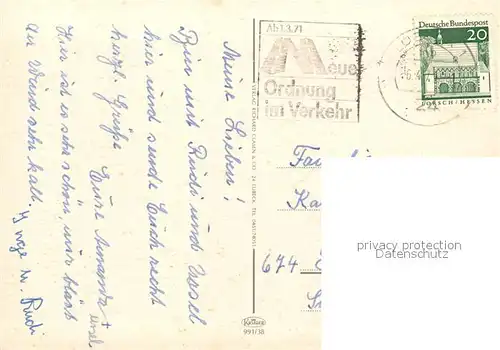 Meine Lieben!
Bin mit Rudi und Ursel
hier und sende Euch recht
herzl. Grüße Eure Amanda + Ursel
Hier ist es sehr schön, nur bläst
der Wind sehr kalt.
Inge u. Rudi
VERLAG RICHARD CLASEN & CIE. 24 LÜBECK,
Ab 1.3.71
Neue
Ordnung
im Verkehr
Deutsche Bundespost
20
LORSCH/HESSEN
Fam
Ka
674
privacy protection
Datenschutz
991/38